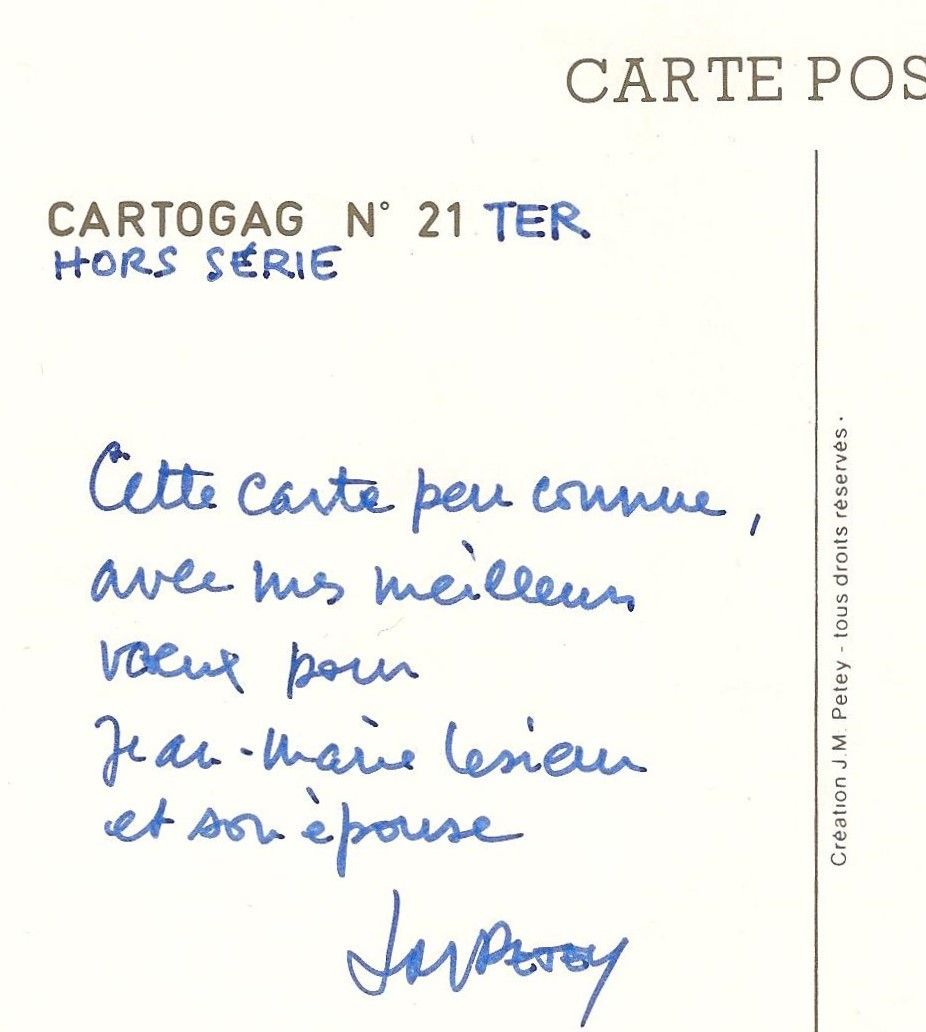 CARTE POS
CARTOGAG N° 21 TER
HORS SÉRIE
Cette carte peu connue,
avec mes meilleurs
vœux pour
Jean-Marie Lesieur
et son épouse
JMPETEY
Création J.M. Petey - tous droits réservés.